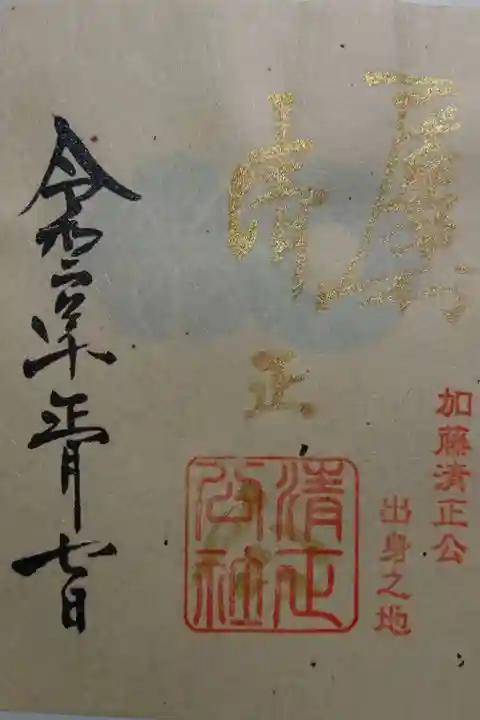 加藤清正公
出身之地
清正
清正
公社
令和二年正月七日